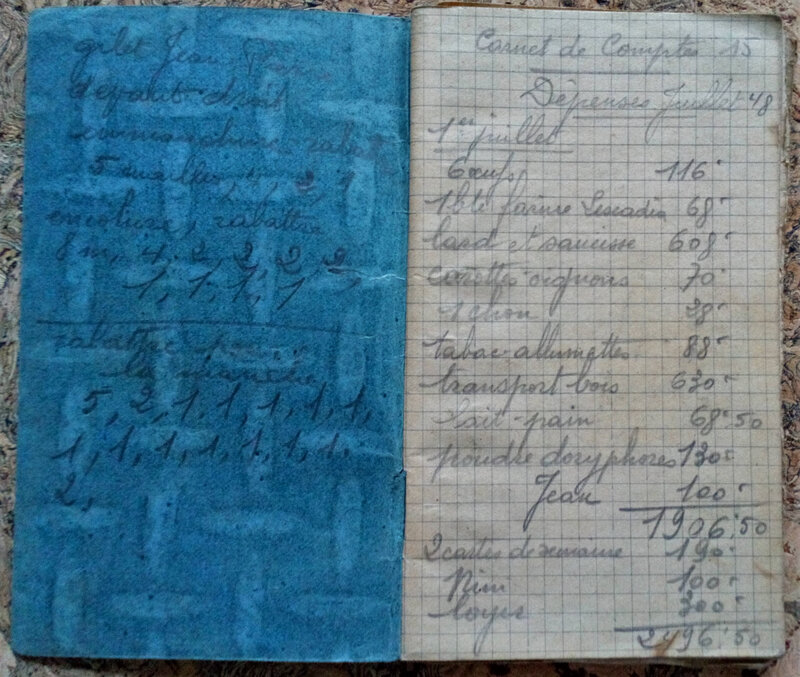 gilet Jean
devant droit
emmanchure rabattre
5 mailles, 2, 2
encolure, rabattre
8 m, 4, 2, 2, 2, 2
1, 1, 1, 1
rabattre pour
la manche
5, 2, 1, 1, 1, 1, 1,
1, 1, 1, 1, 1, 1, 1,
2,
Carnet de Comptes 15
Dépenses Juillet 48
1er juillet
6 œufs 116
1 bte farine 68
lard et saucisse 608
carottes oignons 70
1 chou 28
tabac allumettes 88
transport bois 630
lait-pain 68.50
poudre doryphores 130
Jean 100
1906.50
2 cartes de semaine 190
100
loyer 300
2496.50